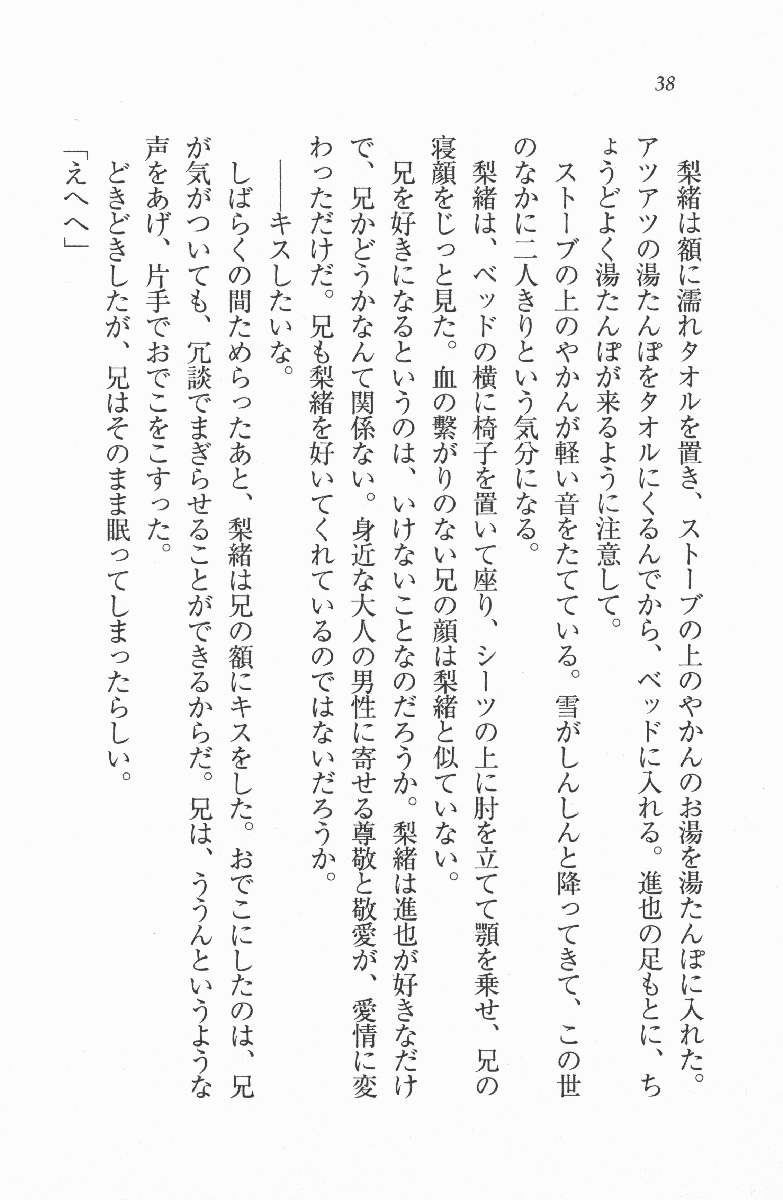 38
梨緒は額に濡れタオルを置き、ストーブの上のやかんのお湯を湯たんぽに入れた。
アツアツの湯たんぽをタオルにくるんでから、ベッドに入れる。進也の足もとに、ち
ょうどよく湯たんぽが来るように注意して。
ストーブの上のやかんが軽い音をたてている。雪がしんしんと降ってきて、この世
のなかに二人きりという気分になる。
梨緒は、ベッドの横に椅子を置いて座り、シーツの上に肘を立てて顎を乗せ、兄の
寝顔をじっと見た。血の繋がりのない兄の顔は梨緒と似ていない。
兄を好きになるというのは、いけないことなのだろうか。梨緒は進也が好きなだけ
で、兄かどうかなんて関係ない。身近な大人の男性に寄せる尊敬と敬愛が、愛情に変
わっただけだ。兄も梨緒を好いてくれているのではないだろうか。
――キスしたいな。
しばらくの間ためらったあと、梨緒は兄の額にキスをした。おでこにしたのは、兄
が気がついても、冗談でまぎらせることができるからだ。兄は、ううんというような
声をあげ、片手でおでこをこすった。
どきどきしたが、兄はそのまま眠ってしまったらしい。
「えへへ」